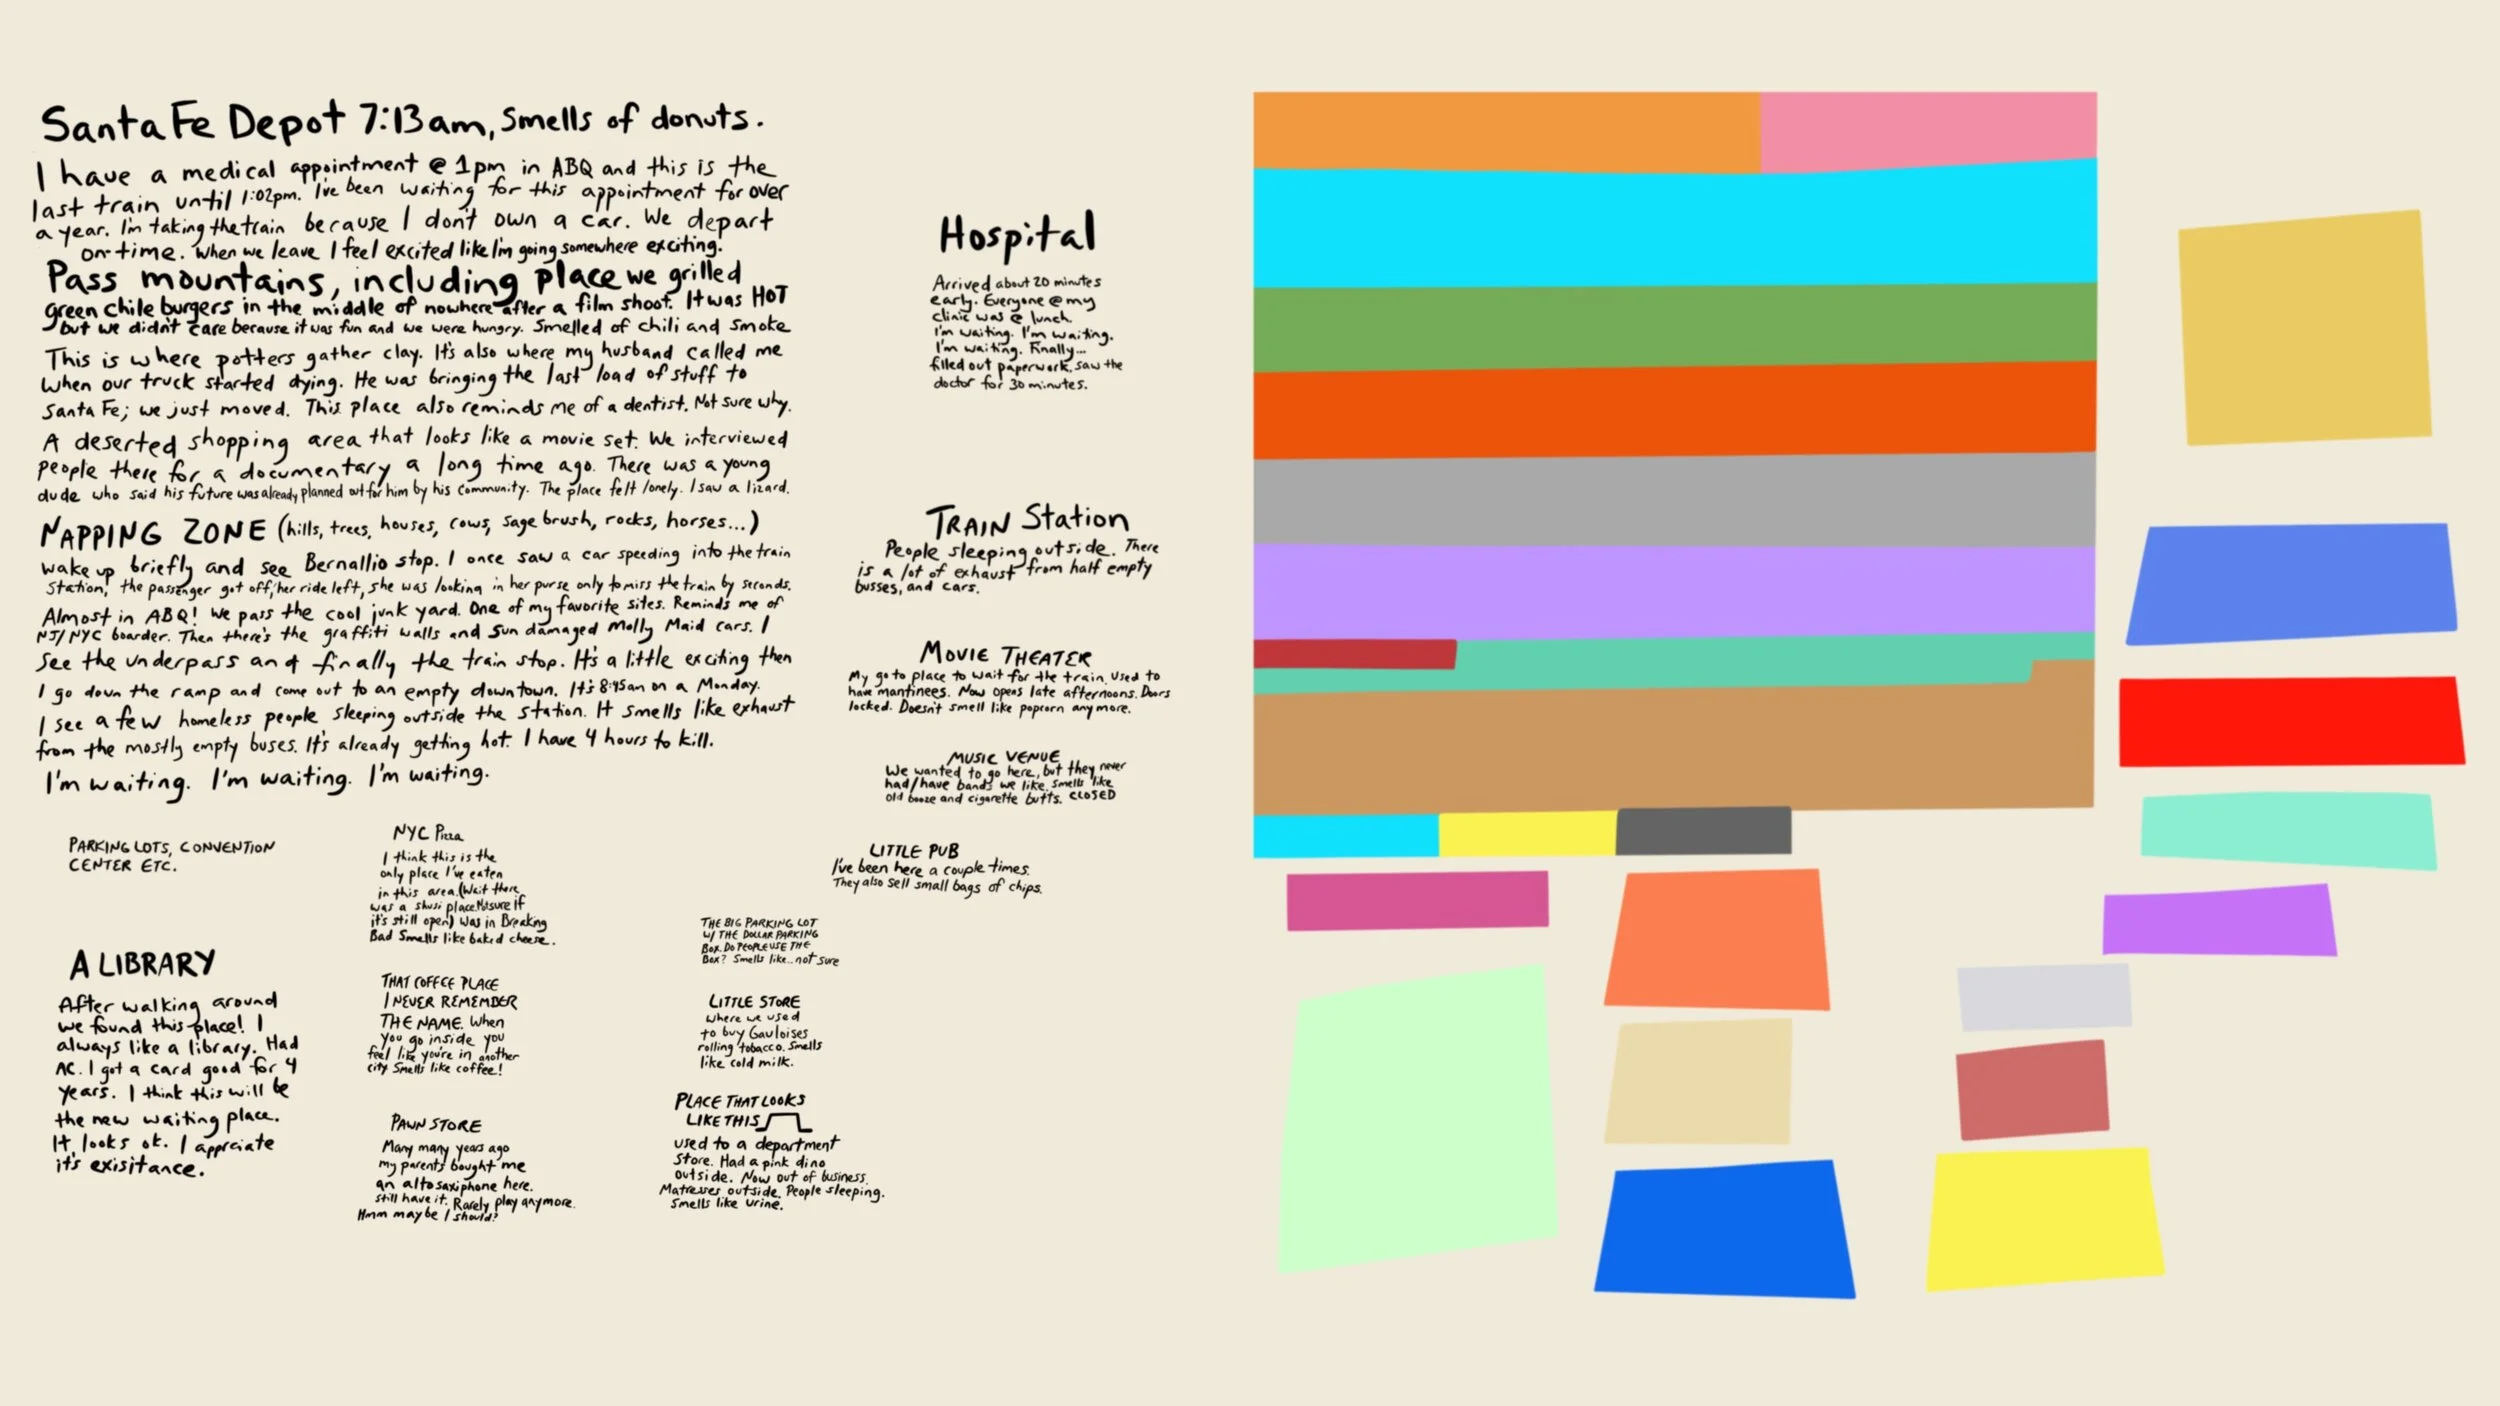 Santa Fe Depot 7:13am, smells of donuts.
I have a medical appointment @ 1pm in ABQ and this is the
last train until 1:02pm. I've been waiting for this appointment for over
a year. I'm taking the train because I don't own a car. We depart
on-time. When we leave I feel excited like I'm going somewhere exciting.
Pass mountains, including place we grilled
green chile burgers in the middle of nowhere after a film shoot. It was HOT
but we didn't care because it was fun and we were hungry. Smelled of chili and smoke
This is where potters gather clay. It's also where my husband called me
when our truck started dying. He was bringing the last load of stuff to
Santa Fe; we just moved. This place also reminds me of a dentist. Not sure why.
A deserted shopping area that looks like a movie set. We interviewed
people there for a documentary a long time ago. There was a young
dude who said his future was already planned out for him by his community. The place felt lonely. I saw a lizard.
NAPPING ZONE (hills, trees, houses, cows, sage brush, rocks, horses...)
wake up briefly and see Bernallio stop. I once saw a car speeding into the train
station, the passenger got off, her ride left, she was looking in her purse only to miss the train by seconds.
Almost in ABQ! We pass the cool junk yard. One of my favorite sites. Reminds me of
NJ/NYC boarder. Then there's the graffiti walls and sun damaged Molly Maid cars. I
see the underpass and finally the train stop. It's a little exciting then
I go down the ramp and come out to an empty downtown. It's 8:45am on a Monday.
I see a few homeless people sleeping outside the station. It smells like exhaust
from the mostly empty buses. It's already getting hot. I have 4 hours to kill.
I'm waiting. I'm waiting. I'm waiting.
PARKING LOTS, CONVENTION
CENTER ETC.
A LIBRARY
After walking around
we found this place! I
always like a library. Had
AC. I got a card good for 4
years. I think this will be
the new waiting place.
It looks ok. I apprciate
it's exisitance.
NYC Pizza
I think this is the
only place I've eaten
in this area. (Wait there
was a shusi place. Not sure if
it's still open) Was in Breaking
Bad Smells like baked cheese.
THAT COFFEE PLACE
I NEVER REMEMBER
THE NAME. When
you go inside you
feel like you're in another
city Smells like coffee!
PAWN STORE
Many many years ago
my parents bought me
an alto saxiphone here.
still have it. Rarely play anymore.
Hmm maybe I should?
THE BIG PARKING LOT
W/ THE DOLLAR PARKING
BOX. DO PEOPLE USE THE
BOX? Smells like... not sure
LITTLE STORE
where we used
to buy Gauloises
rolling tobacco. Smells
like cold milk.
PLACE THAT LOOKS
LIKE THIS
used to a department
store. Had a pink dino
outside. Now out of business.
Matresses outside. People sleeping.
Smells like urine.
Hospital
Arrived about 20 minutes
early. Everyone @ my
clinic was @ lunch.
I'm waiting. I'm waiting.
I'm waiting. Finally...
filled out paperwork, saw the
doctor for 30 minutes.
TRAIN Station
People sleeping outside. There
is a lot of exhaust from half empty
busses, and cars.
MOVIE THEATER
My go to place to wait for the train. Used to
have mantinees. Now opens late afternoons. Doors
locked. Doesn't smell like popcorn any more.
MUSIC VENUE
We wanted to go here, but they never
had/have bands we like. Smells like
old booze and cigarette butts. CLOSED
LITTLE PUB
I've been here a couple times.
They also sell small bags of chips.